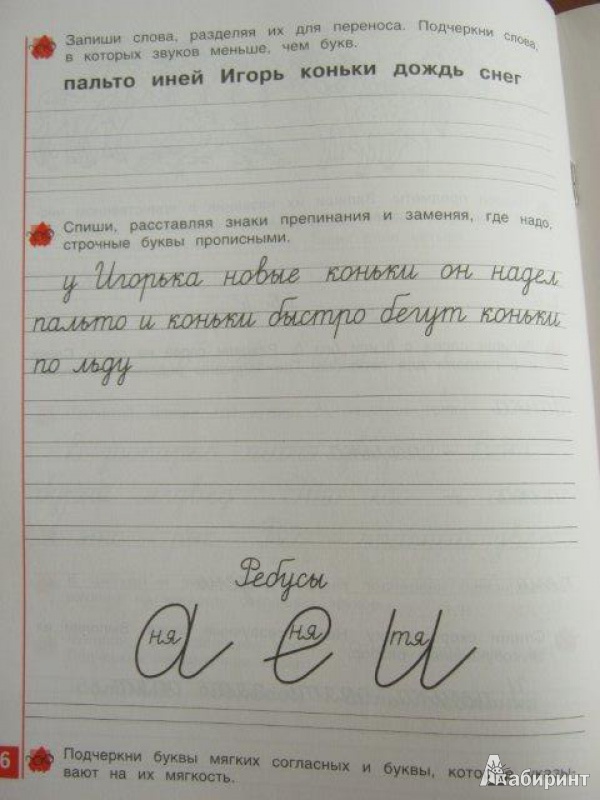 Запиши слова, разделяя их для переноса. Подчеркни слова,
в которых звуков меньше, чем букв.
пальто иней Игорь коньки дождь снег
Спиши, расставляя знаки препинания и заменяя, где надо,
строчные буквы прописными.
у Игорька новые коньки он надел
пальто и коньки быстро бегут коньки
по льду
Ребусы
ня а ня е тя и
6 Подчеркни буквы мягких согласных и буквы, которые указы-
вают на их мягкость.
Лабиринт